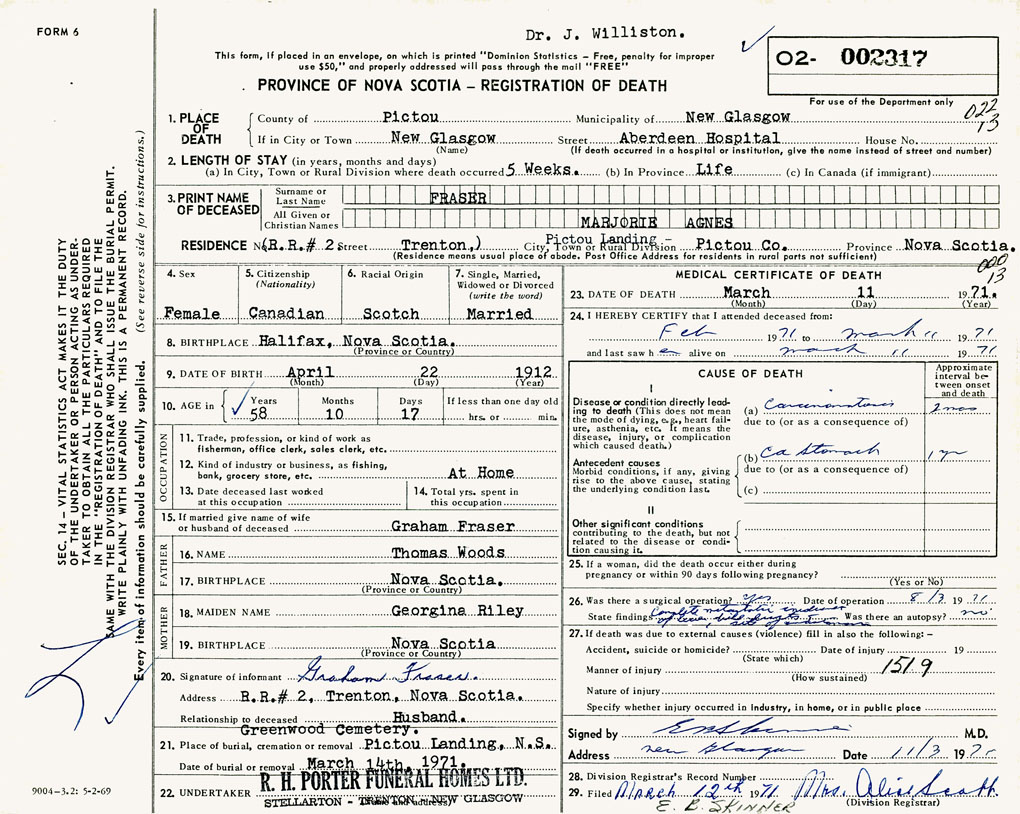 FORM 6
Dr. J. Williston.
This form, if placed in an envelope, on which is printed "Dominion Statistics – Free, penalty for improper
use $50," and properly addressed will pass through the mail "FREE"
PROVINCE OF NOVA SCOTIA – REGISTRATION OF DEATH
02- 002317
For use of the Department only
022
13
1. PLACE OF DEATH
County of Pictou Municipality of New Glasgow
If in City or Town New Glasgow Street Aberdeen Hospital House No.
(Name) (If death occurred in a hospital or institution, give the name instead of street and number)
2. LENGTH OF STAY (in years, months and days)
(a) In City, Town or Rural Division where death occurred 5 Weeks. (b) In Province Life (c) In Canada (if immigrant)
3. PRINT NAME OF DECEASED
Surname or Last Name FRASER
All Given or Christian Names MARJORIE AGNES
Pictou Landing –
RESIDENCE No. (R.R.# 2 Street Trenton,) City, Town or Rural Division Pictou Co. Province Nova Scotia.
(Residence means usual place of abode. Post Office Address for residents in rural parts not sufficient)
000
13
4. Sex Female
5. Citizenship (Nationality) Canadian
6. Racial Origin Scotch
7. Single, Married, Widowed or Divorced (write the word) Married
8. BIRTHPLACE Halifax, Nova Scotia.
(Province or Country)
9. DATE OF BIRTH April 22 1912
(Month) (Day) (Year)
10. AGE in Years 58 Months 10 Days 17 If less than one day old hrs. or min.
OCCUPATION
11. Trade, profession, or kind of work as
fisherman, office clerk, sales clerk, etc.
12. Kind of industry or business, as fishing,
bank, grocery store, etc. At Home
13. Date deceased last worked
at this occupation
14. Total yrs. spent in
this occupation
15. If married give name of wife
or husband of deceased Graham Fraser
FATHER
16. NAME Thomas Woods
17. BIRTHPLACE Nova Scotia.
(Province or Country)
MOTHER
18. MAIDEN NAME Georgina Riley
19. BIRTHPLACE Nova Scotia
(Province or Country)
20. Signature of informant Graham Fraser.
Address R.R.# 2, Trenton, Nova Scotia.
Relationship to deceased Husband.
Greenwood Cemetery.
21. Place of burial, cremation or removal Pictou Landing, N.S.
Date of burial or removal March 14th, 1971.
22. UNDERTAKER R. H. PORTER FUNERAL HOMES LTD.
STELLARTON - TRENTON - NEW GLASGOW
MEDICAL CERTIFICATE OF DEATH
23. DATE OF DEATH March 11 1971.
(Month) (Day) (Year)
24. I HEREBY CERTIFY that I attended deceased from:
Feb 1971 to March 11 1971
and last saw her alive on March 11 1971
CAUSE OF DEATH
Approximate interval between onset and death
I
Disease or condition directly leading to death (This does not mean the mode of dying, e.g., heart failure, asthenia, etc. It means the disease, injury, or complication which caused death.)
(a) Carcinomatosis 2 mos
due to (or as a consequence of)
Antecedent causes
Morbid conditions, if any, giving rise to the above cause, stating the underlying condition last.
(b) Ca Stomach 1 yr
due to (or as a consequence of)
(c)
II
Other significant conditions
contributing to the death, but not related to the disease or condition causing it.
25. If a woman, did the death occur either during
pregnancy or within 90 days following pregnancy?
(Yes or No)
26. Was there a surgical operation? yes Date of operation 8/3 1971
State findings Was there an autopsy? no
27. If death was due to external causes (violence) fill in also the following: –
Accident, suicide or homicide? Date of injury 19
(State which)
Manner of injury 151.9
(How sustained)
Nature of injury
Specify whether injury occurred in industry, in home, or in public place
Signed by M.D.
Address New Glasgow Date 11/3 1971
28. Division Registrar's Record Number
29. Filed March 12th 1971 Mrs. Alice Scott
(Division Registrar)
E. B. SKINNER
SEC. 14 – VITAL STATISTICS ACT MAKES IT THE DUTY
OF THE UNDERTAKER OR PERSON ACTING AS UNDER-
TAKER TO OBTAIN ALL THE PARTICULARS REQUIRED
IN THE "REGISTRATION OF DEATH" AND TO FILE THE
SAME WITH THE DIVISION REGISTRAR WHO SHALL ISSUE THE BURIAL PERMIT.
WRITE PLAINLY WITH UNFADING INK. THIS IS A PERMANENT RECORD.
Every item of information should be carefully supplied. (See reverse side for instructions.)
9004–3.2: 5-2-69